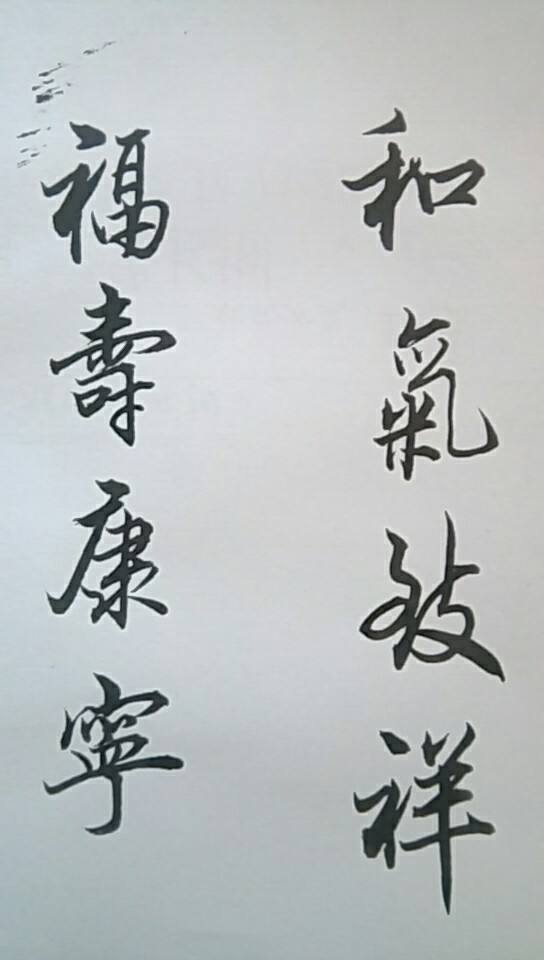 和氣致祥
福壽康寧